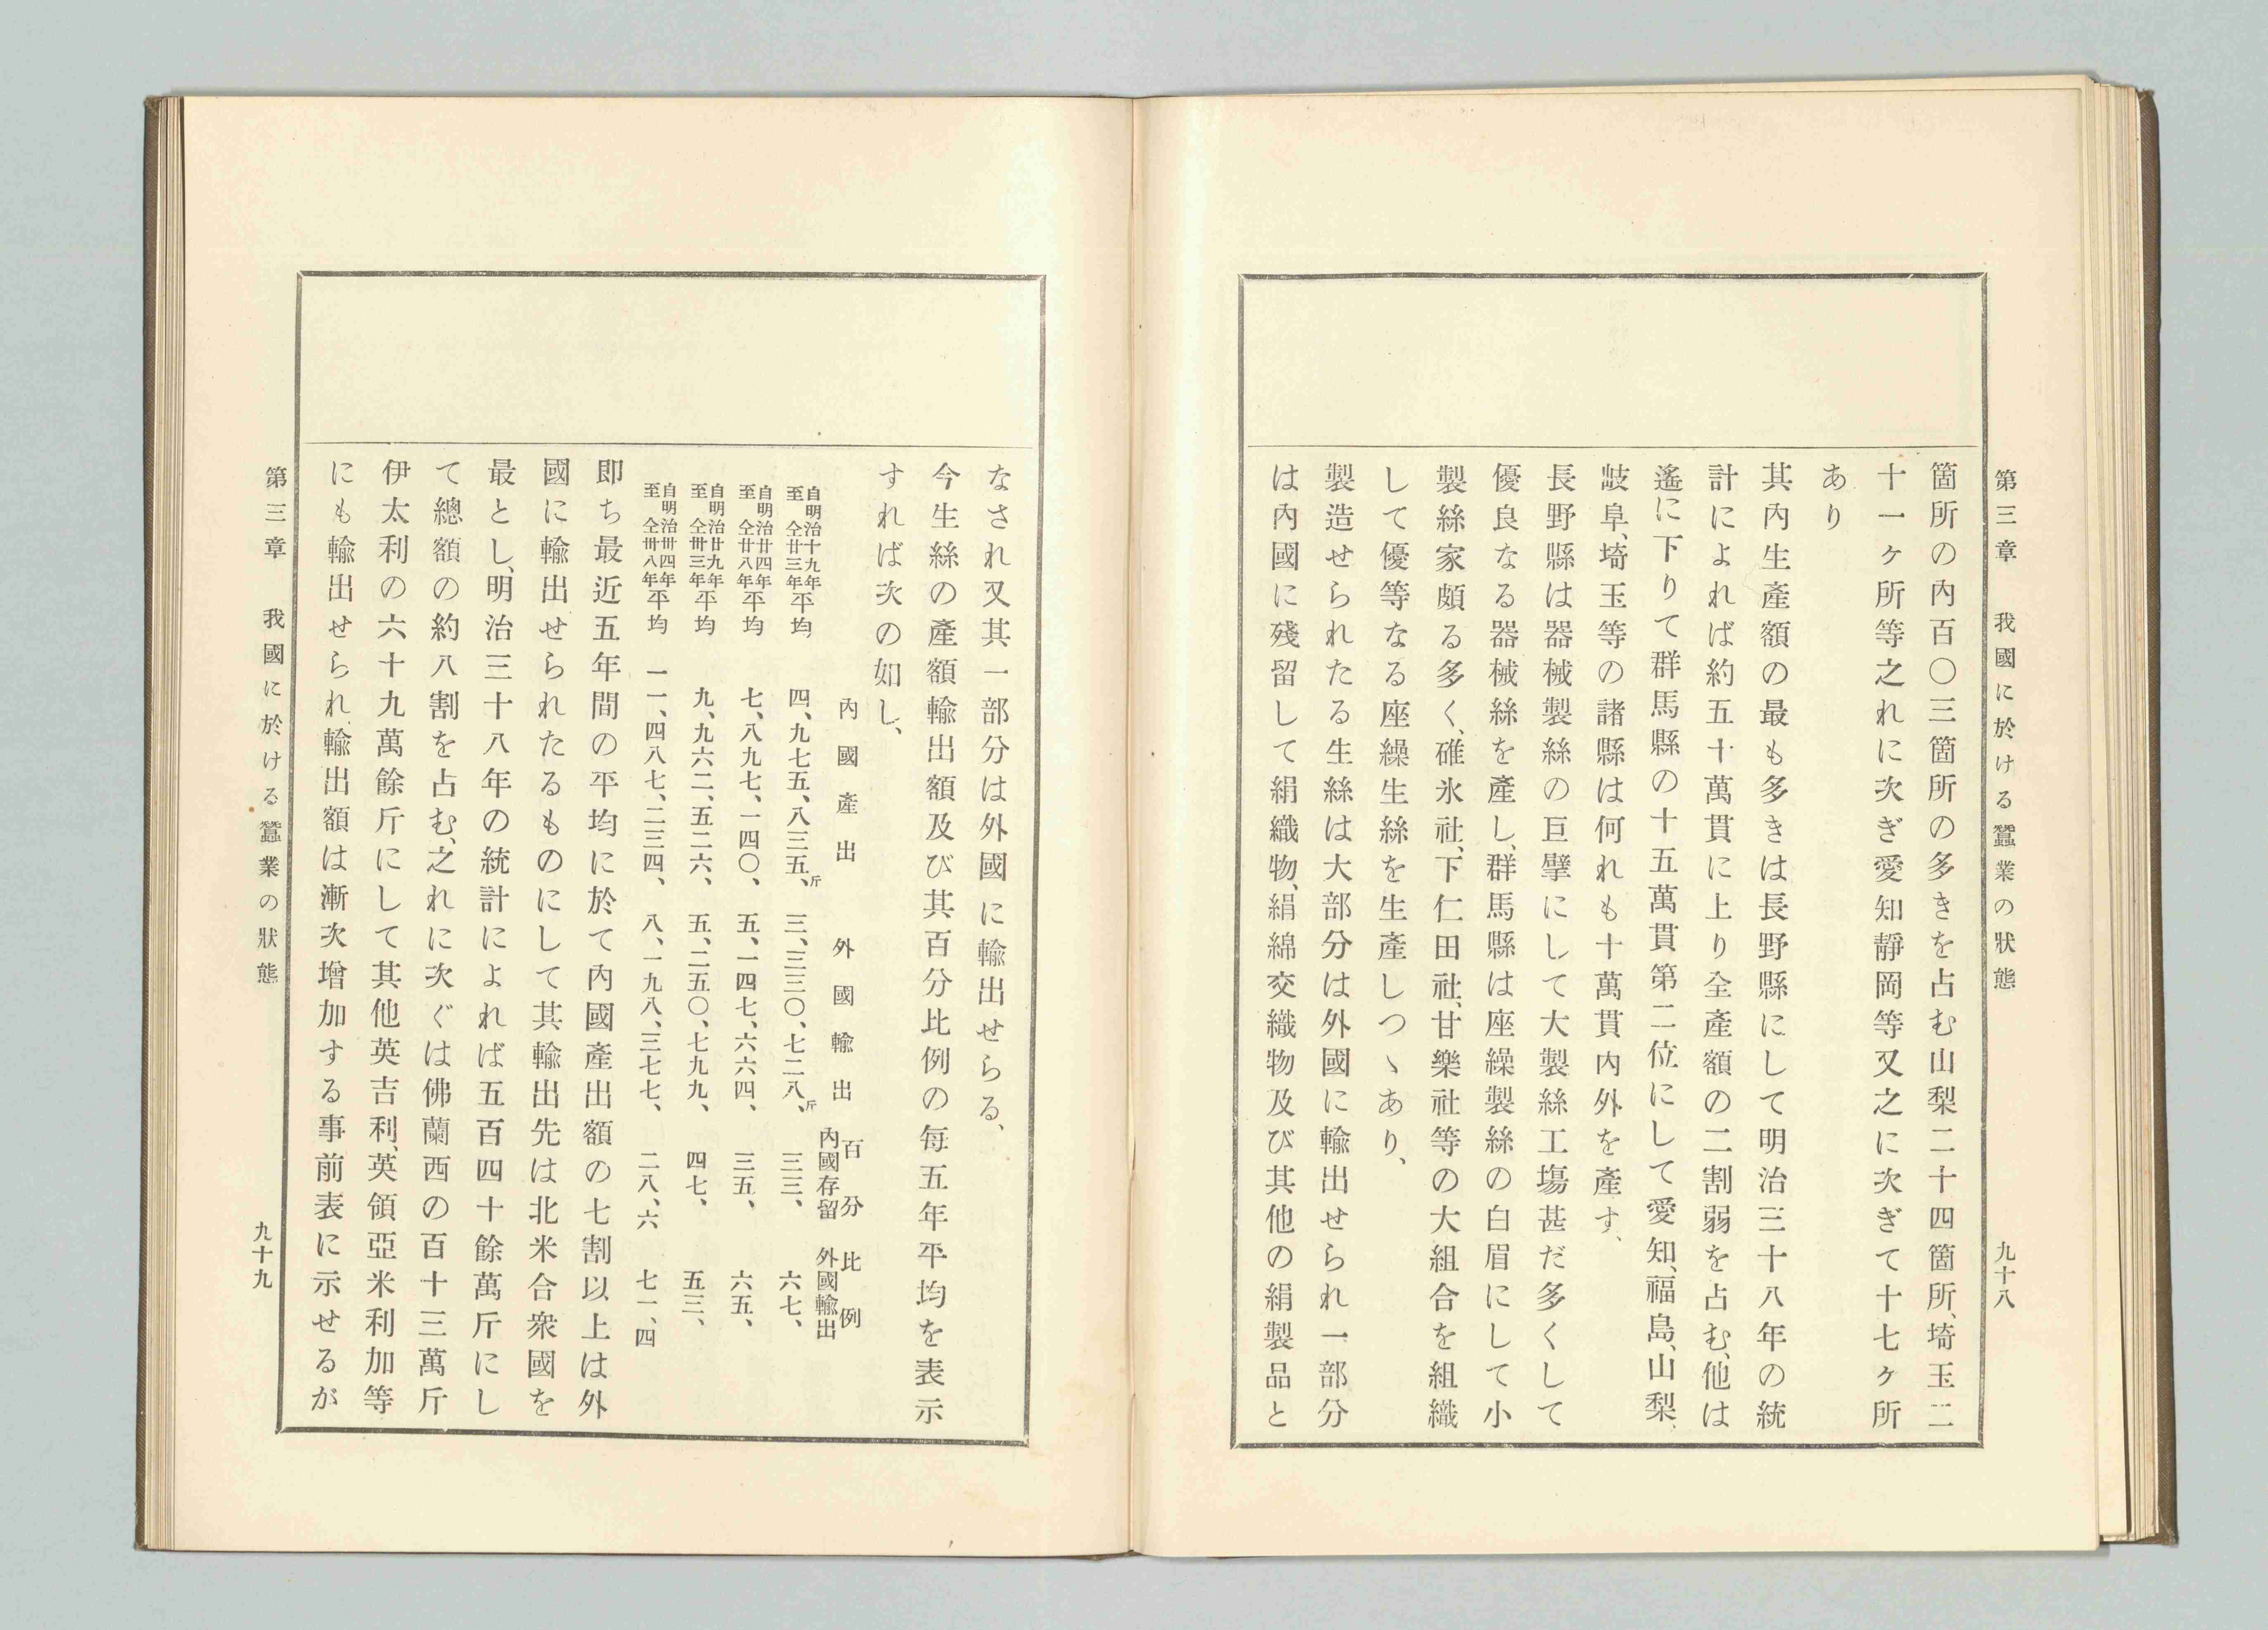 第三章　我國に於ける蠶業の狀態　九十八
箇所の內百〇三箇所の多きを占む山梨二十四箇所、埼玉二
十一ヶ所等之れに次ぎ愛知靜岡等又之に次ぎて十七ヶ所
あり
其內生產額の最も多きは長野縣にして明治三十八年の統
計によれば約五十萬貫に上り全產額の二割弱を占む、他は
遙に下りて群馬縣の十五萬貫第二位にして愛知、福島、山梨、
岐阜、埼玉等の諸縣は何れも十萬貫內外を產す、
長野縣は器械製絲の巨擘にして大製絲工塲甚だ多くして
優良なる器械絲を產し、群馬縣は座繰製絲の白眉にして小
製絲家頗る多く、碓氷社、下仁田社、甘樂社等の大組合を組織
して優等なる座繰生絲を生產しつゝあり、
製造せられたる生絲は大部分は外國に輸出せられ一部分
は內國に殘留して絹織物、絹綿交織物及び其他の絹製品と
なされ又其一部分は外國に輸出せらる、
今生絲の產額輸出額及び其百分比例の每五年平均を表示
すれば次の如し、
內國產出　外國輸出　百分比例
內國存留　外國輸出
自明治十九年至仝廿三年平均　四、九七五、八三五、斤　三、三三〇、七二八、斤　三三、　六七、
自明治廿四年至仝廿八年平均　七、八九七、一四〇、　五、一四七、六六四、　三五、　六五、
自明治廿九年至仝卅三年平均　九、九六二、五二六、　五、二五〇、七九九、　四七、　五三、
自明治卅四年至仝卅八年平均　一一、四八七、二三四、　八、一九八、三七七、　二八、六　七一、四
即ち最近五年間の平均に於て內國產出額の七割以上は外
國に輸出せられたるものにして其輸出先は北米合衆國を
最とし、明治三十八年の統計によれば五百四十餘萬斤にし
て總額の約八割を占む、之れに次ぐは佛蘭西の百十三萬斤
伊太利の六十九萬餘斤にして其他英吉利、英領亞米利加等
にも輸出せられ、輸出額は漸次增加する事前表に示せるが
第三章　我國に於ける蠶業の狀態　九十九